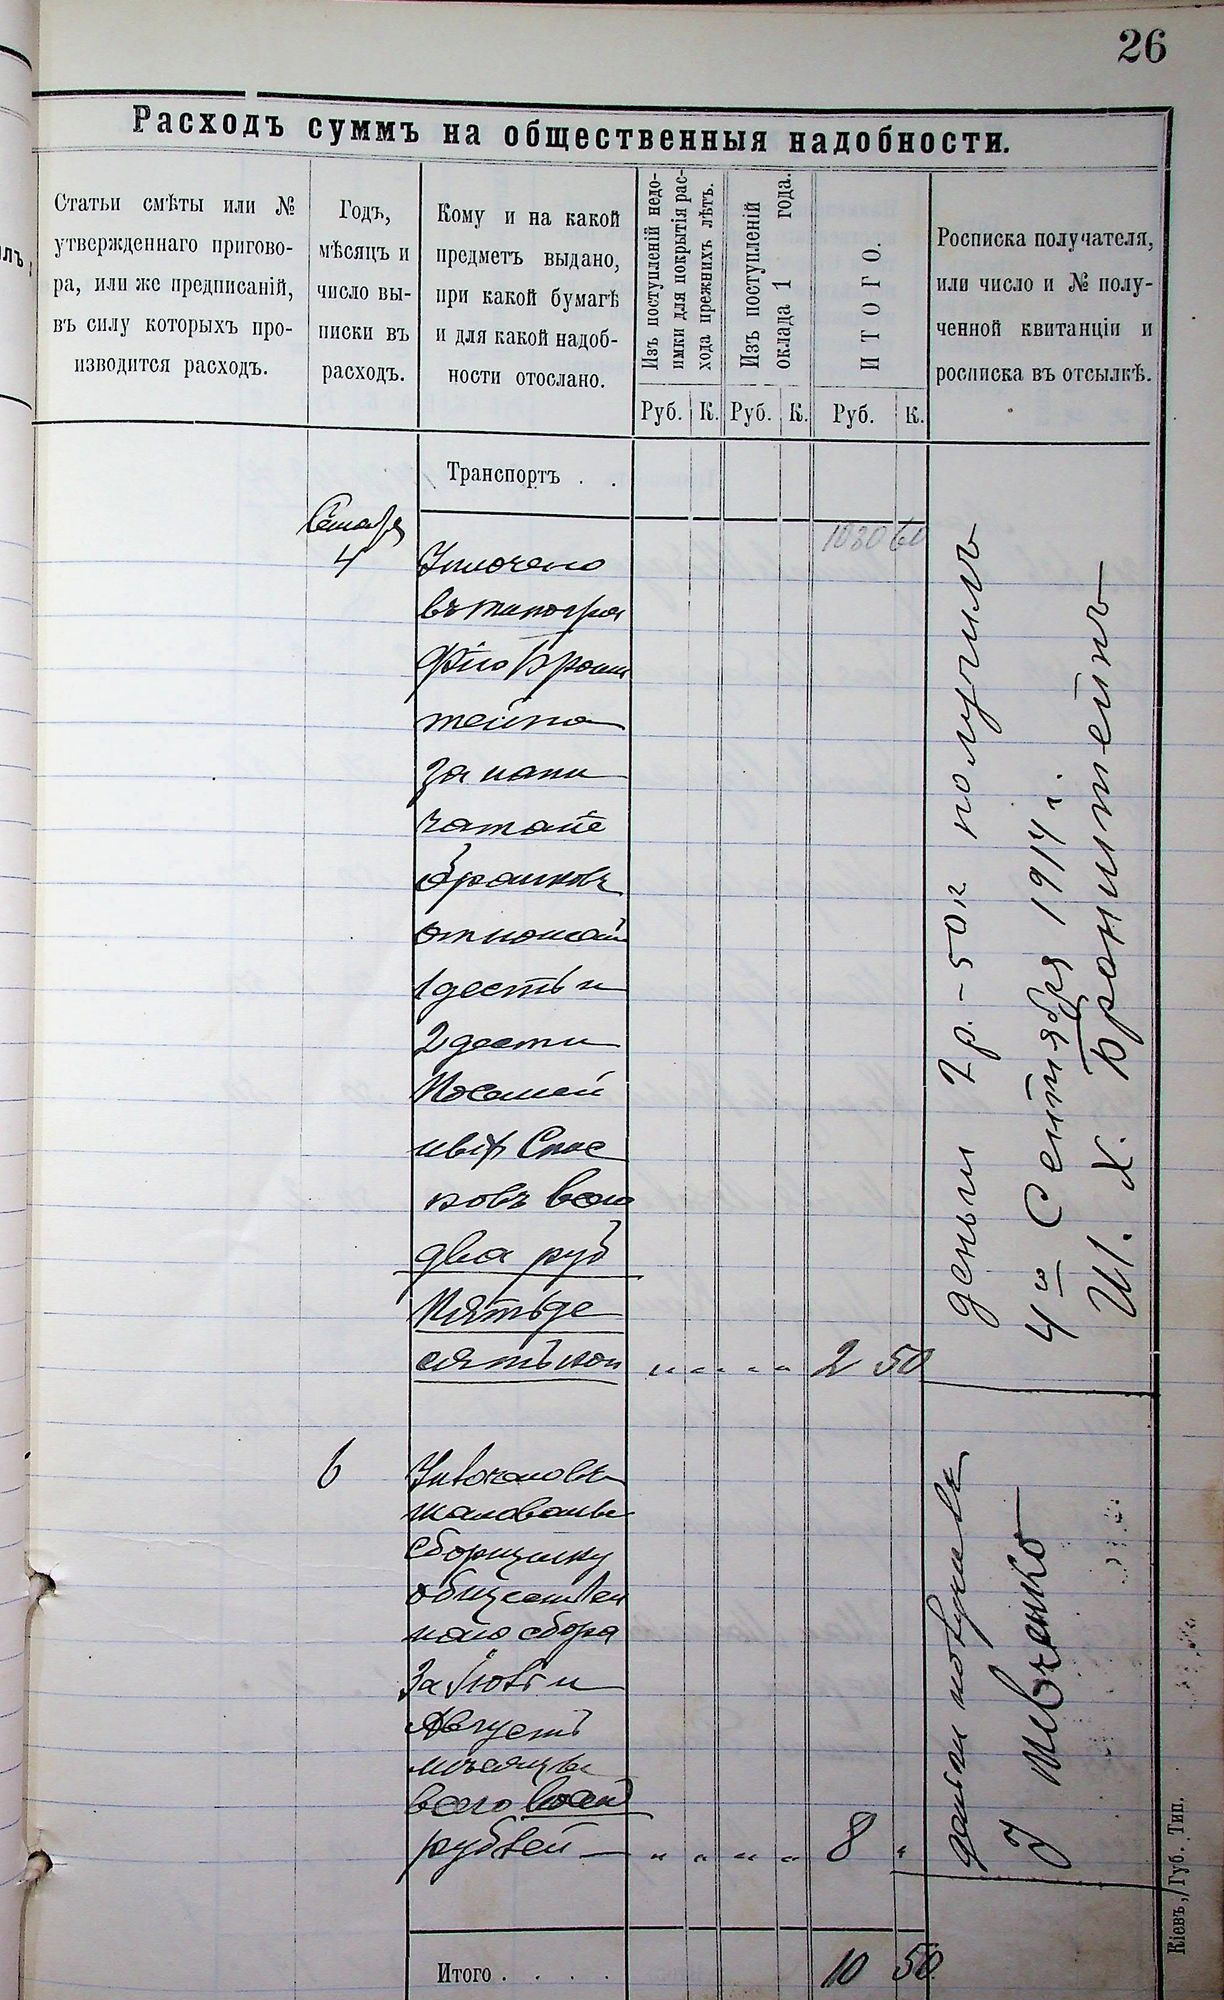 26
Расходъ суммъ на общественныя надобности.
Статьи смѣты или №
утвержденнаго пригово-
ра, или же предписаній,
въ силу которыхъ про-
изводится расходъ.
Годъ,
мѣсяцъ и
число вы-
писки въ
расходъ.
Кому и на какой
предметъ выдано,
при какой бумагѣ
и для какой надоб-
ности отослано.
Изъ поступленій недо-
имки для покрытія рас-
хода прежнихъ лѣтъ.
Изъ поступленій
оклада 1 года.
ИТОГО.
Росписка получателя,
или число и № полу-
ченной квитанціи и
росписка въ отсылкѣ.
Руб. К. Руб. К. Руб. К.
Транспортъ . .
1030 60
4
Уплочено
въ типогра
фію Бронш
тейна
за напи
чатаніе
бланковъ
отношеній
1 десть и
2 дести
Посемей
ныхъ Спис
ковъ всего
два руб
Пятьде
сятъ коп " " " " 2 50
деньги 2р.-50к получилъ
4го Сентября 1914 г.
И. Х. Бронштейнъ
6
жалованье
сборщику
обществен
наго сбора
За Іюль и
Августъ
мѣсяцы
всего восемь
рублей — " " " " 8 "
деньги получилъ
Шевченко
Итого . . . . 10 50
Кіевъ, Губ. Тип.